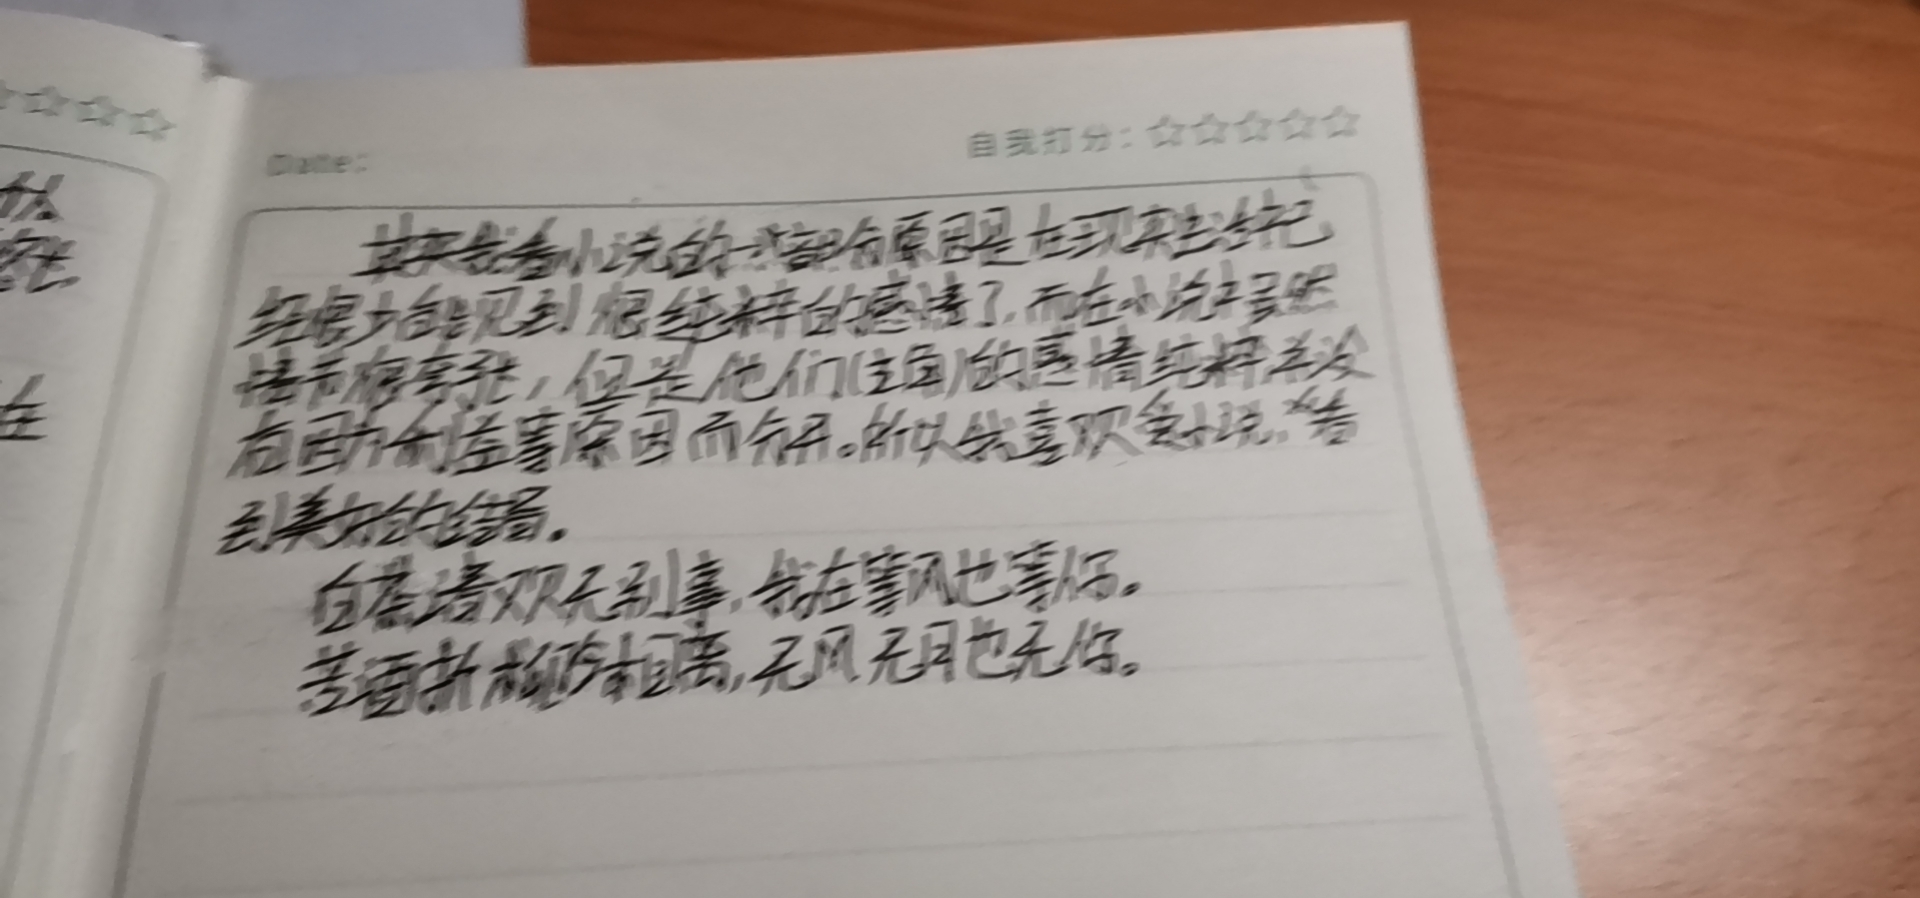 Date:
自我打分：☆☆☆☆☆
其实我看小说的一大部分原因是在现实生活已
经很少能见到很纯粹的感情了，而在小说里虽然
情节很夸张，但是他们(主角)的感情纯粹并没
有因为利益等原因而分开。所以我喜欢看小说，看
到美好的结局。
白茶清欢无别事，我在等风也等你。
苦酒折柳今相离，无风无月也无你。
什么
在